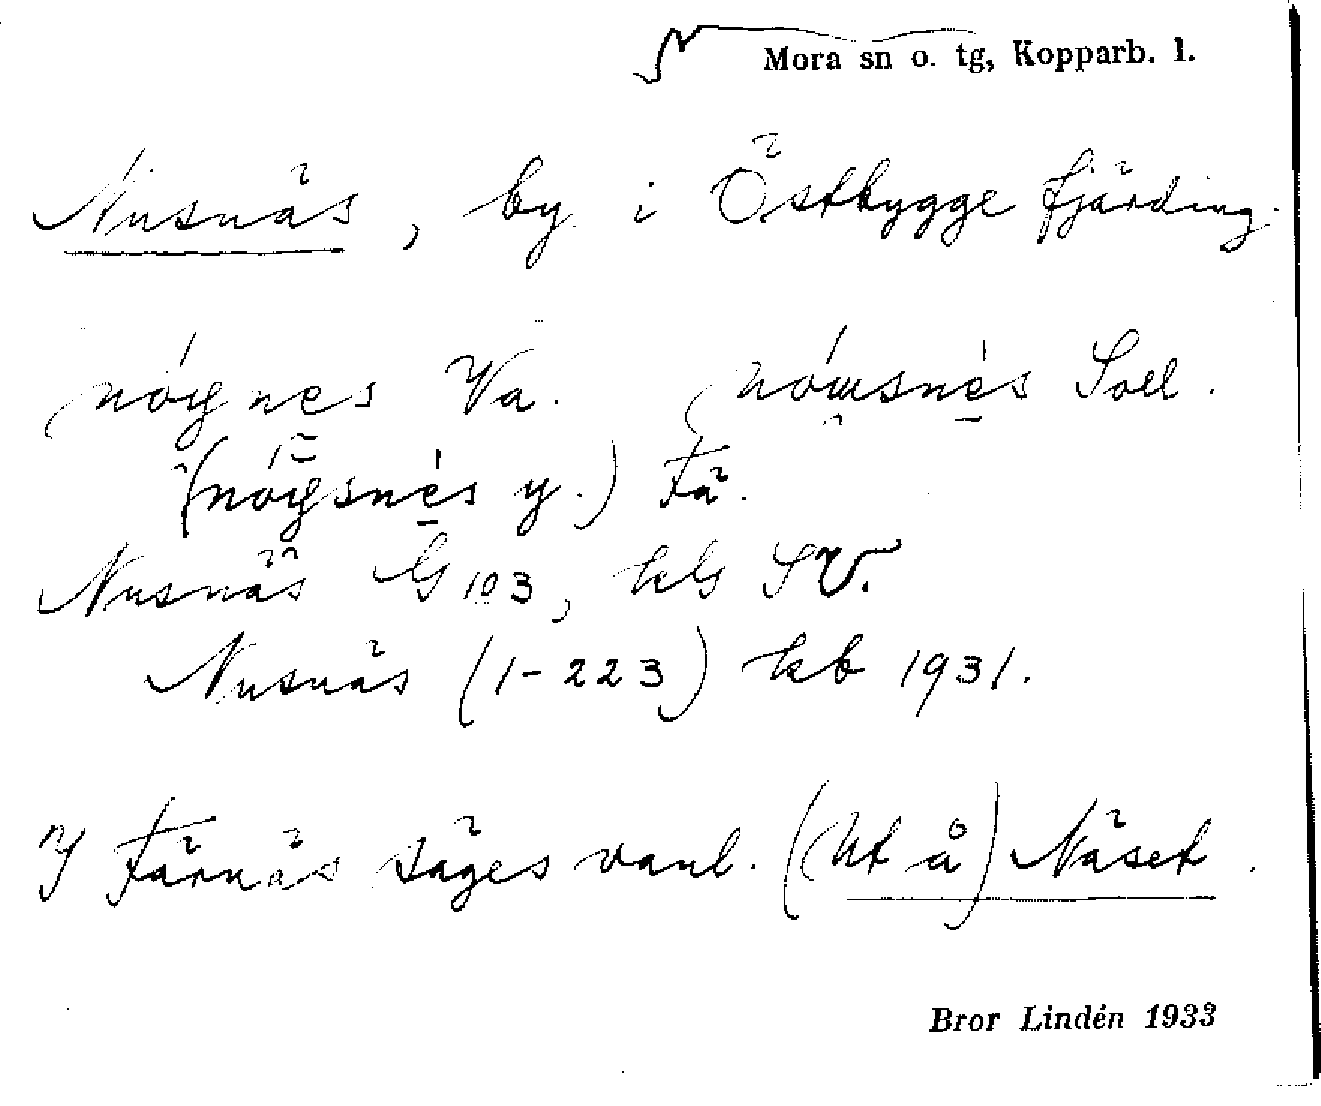 Mora sn o. tg, Kopparb. l.
Nusnäs, by i Östbygge fjärding.
Va. Soll.
y.) Fä.
Nusnäs G 103, kls SV.
Nusnäs (1-223) kb 1931.
I Färnäs säges vanl. (Ut å) Näset.
Bror Lindén 1933